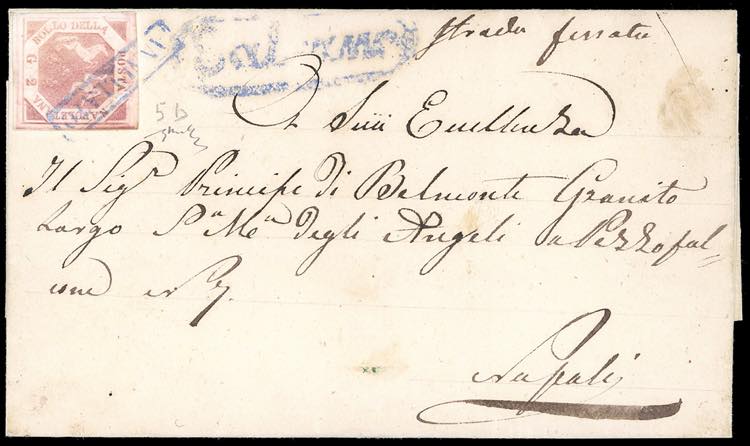 BOLLO DELLA POSTA NAPOLETANA
G 2
ANNULLATO
Strada ferrata
5 b
A Sua Eccellenza
Il Sig.r Principe di Belmonte Granito
Largo S.a M.a degli Angeli a Pizzofal=
cone
Napoli